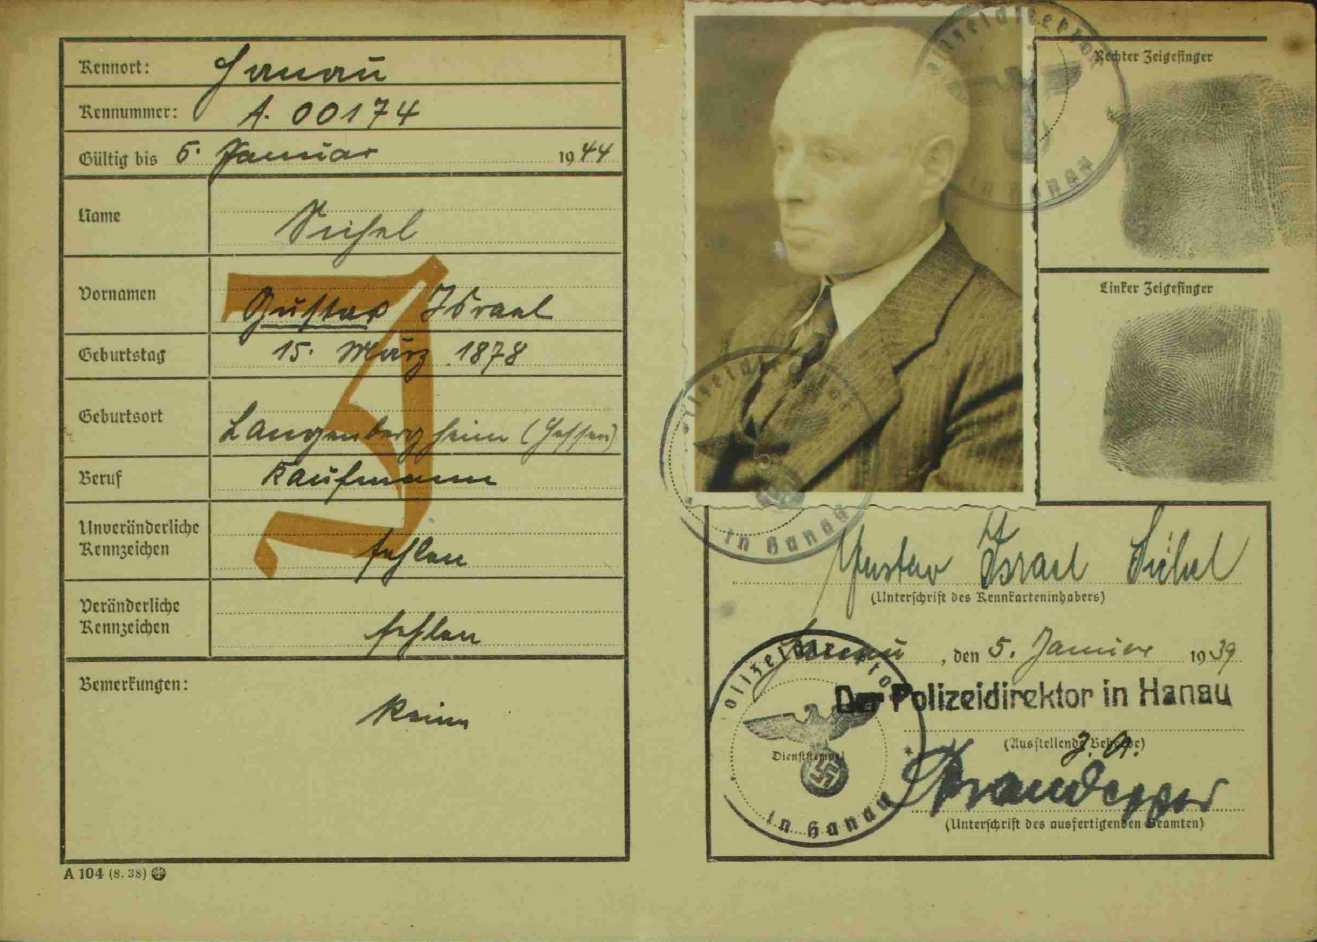 Kennort: Hanau
Kennummer: A. 00174
Gültig bis 5. Januar 1944
Name Sichel
Vornamen Gustav Israel
Geburtstag 15. März 1878
Geburtsort Langenbergheim (Hessen)
Beruf Kaufmann
Unveränderliche
Kennzeichen fehlen
Veränderliche
Kennzeichen fehlen
Bemerkungen:
Keine
J
A 104 (8. 38)
Polizeidirektor
in Hanau
Rechter Zeigefinger
Linker Zeigefinger
Polizeidirektor
in Hanau
Gustav Israel Sichel
(Unterschrift des Kennkarteninhabers)
Hanau, den 5. Januar 1939
Der Polizeidirektor in Hanau
(Ausstellende Behörde)
J. A.
(Unterschrift des ausfertigenden Beamten)
Polizeidirektor
Dienststempel
in Hanau